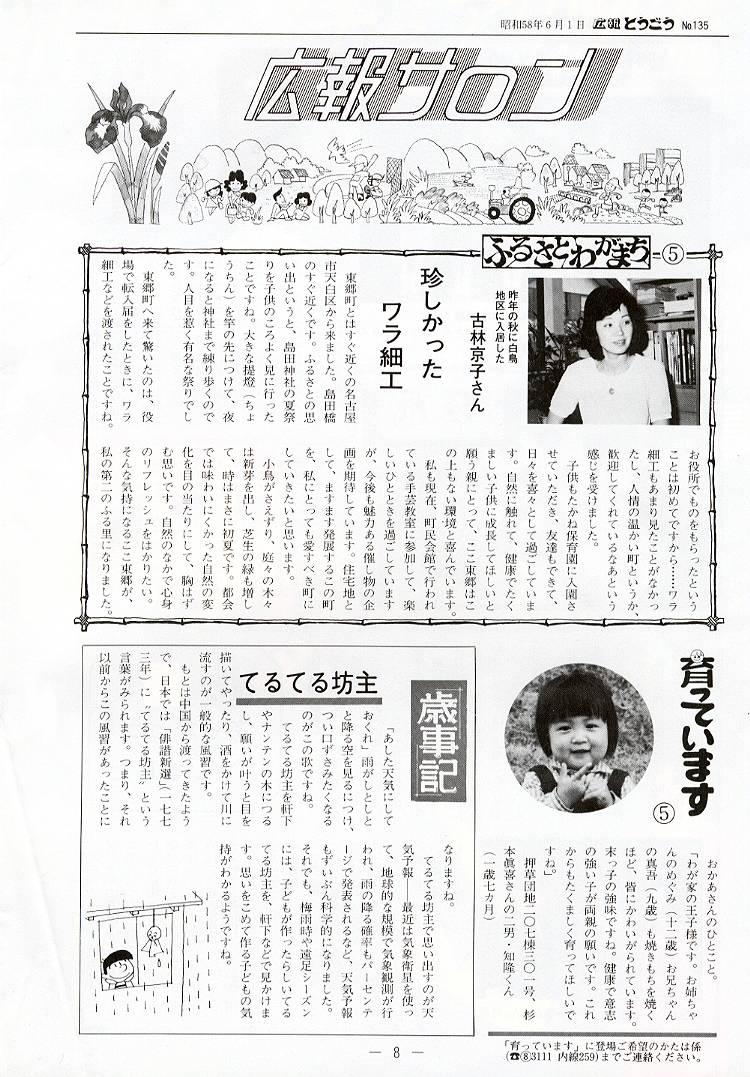 昭和58年6月1日 広報とうごう No.135
広報サロン
ふるさとわがまち ⑤
昨年の秋に白鳥
地区に入居した
古林京子さん
珍しかった
ワラ細工
東郷町とはすぐ近くの名古屋
市天白区から来ました。島田橋
のすぐ近くです。ふるさとの思
い出というと、島田神社の夏祭
りを子供のころよく見に行った
ことですね。大きな提燈(ちょ
うちん)を竿の先につけて、夜
になると神社まで練り歩くので
す。人目を惹く有名な祭りでし
た。
東郷町へ来て驚いたのは、役
場で転入届をしたときに、ワラ
細工などを渡されたことですね。
お役所でものをもらったという
ことは初めてですから……ワラ
細工もあまり見たことがなかっ
たし、人情の温かい町というか、
歓迎してくれているなあという
感じを受けました。
子供もたかね保育園に入園さ
せていただき、友達もできて、
日々を喜々として過ごしていま
す。自然に触れて、健康でたく
ましい子供に成長してほしいと
願う親にとって、ここ東郷はこ
の上もない環境と喜んでいます。
私も現在、町民会館で行われ
ている手芸教室に参加して、楽
しいひとときを過ごしています
が、今後も魅力ある催し物の企
画を期待しています。住宅地と
して、ますます発展するこの町
を、私にとっても愛すべき町に
していきたいと思います。
小鳥がさえずり、庭々の木々
は新芽を出し、芝生の緑も増し
て、時はまさに初夏です。都会
では味わいにくかった自然の変
化を目の当たりにして、胸はず
む思いです。自然のなかで心身
のリフレッシュをはかりたい。
そんな気持になるここ東郷が、
私の第二のふる里になりました。
育っています ⑤
おかあさんのひとこと。
「わが家の王子様です。お姉ちゃ
んのめぐみ(十二歳)お兄ちゃん
の真吾(九歳)も焼きもちを焼く
ほど、皆にかわいがられています。
末っ子の強味ですね。健康で意志
の強い子が両親の願いです。これ
からもたくましく育ってほしいで
すね」
押草団地二〇七棟三〇一号、杉
本眞喜さんの二男・知隆くん
(一歳七カ月)
「育っています」に登場ご希望のかたは係
(☎⑧3111 内線259)までご連絡ください。
歳事記
てるてる坊主
「あした天気にして
おくれ」雨がしとしと
と降る空を見るにつけ、
つい口ずさみたくなる
のがこの歌ですね。
てるてる坊主を軒下
やナンテンの木につる
し、願いが叶うと目を
描いてやったり、酒をかけて川に
流すのが一般的な風習です。
もとは中国から渡ってきたよう
で、日本では「俳諧新選」(一七七
三年)に〝てるてる坊主〟という
言葉がみられます。つまり、それ
以前からこの風習があったことに
なりますね。
てるてる坊主で思い出すのが天
気予報──最近は気象衛星を使っ
て、地球的な規模で気象観測が行
われ、雨の降る確率もパーセンテ
ージで発表されるなど、天気予報
もずいぶん科学的になりました。
それでも、梅雨時や遠足シーズン
には、子どもが作ったらしいてる
てる坊主を、軒下などで見かけま
す。思いをこめて作る子どもの気
持がわかるようですね。
— 8 —